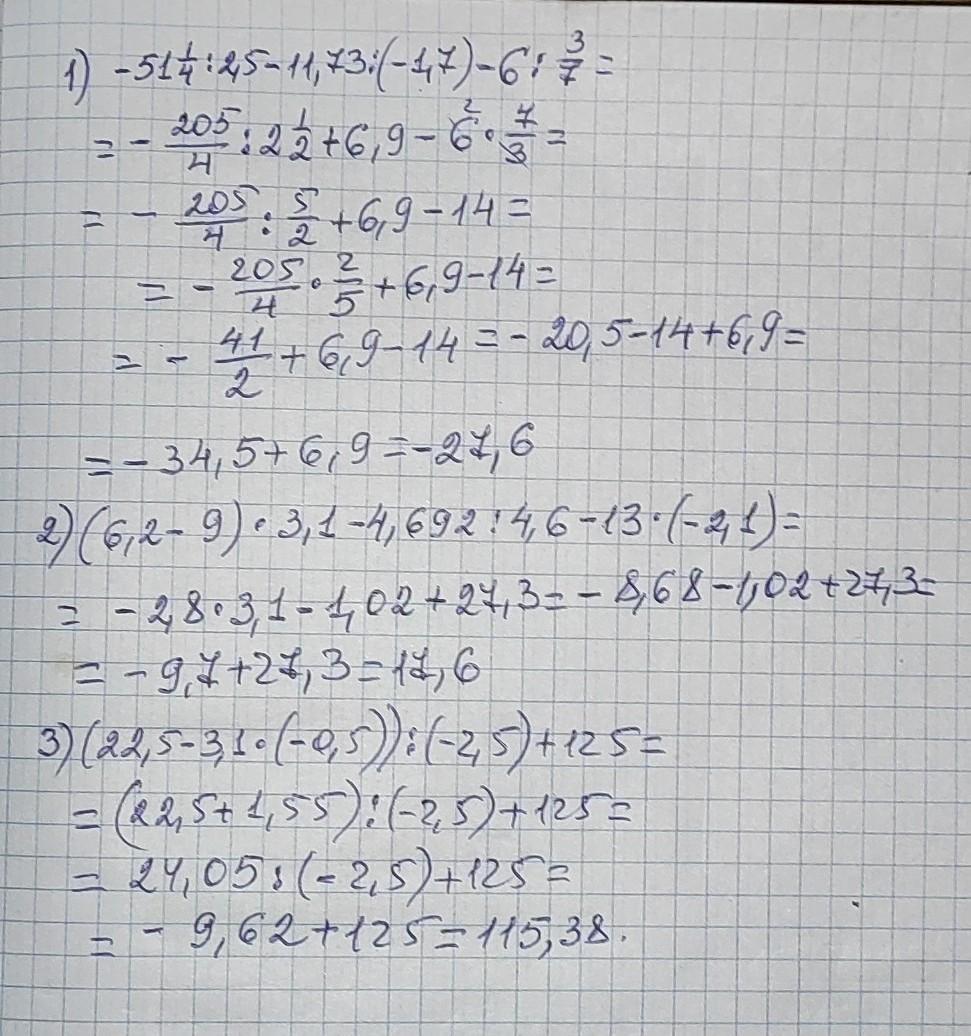 1) -51 1/4 : 2,5 - 11,73 : (-1,7) - 6 : 3/7 =
= - 205/4 : 2 1/2 + 6,9 - 6 2 · 7/3 =
= - 205/4 : 5/2 + 6,9 - 14 =
= - 205/4 · 2/5 + 6,9 - 14 =
= - 41/2 + 6,9 - 14 = - 20,5 - 14 + 6,9 =
= - 34,5 + 6,9 = -27,6
2) (6,2 - 9) · 3,1 - 4,692 : 4,6 - 13 · (-2,1) =
= - 2,8 · 3,1 - 1,02 + 27,3 = - 8,68 - 1,02 + 27,3 =
= - 9,7 + 27,3 = 17,6
3) (22,5 - 3,1 · (-0,5)) : (-2,5) + 125 =
= (22,5 + 1,55) : (-2,5) + 125 =
= 24,05 : (-2,5) + 125 =
= - 9,62 + 125 = 115,38.